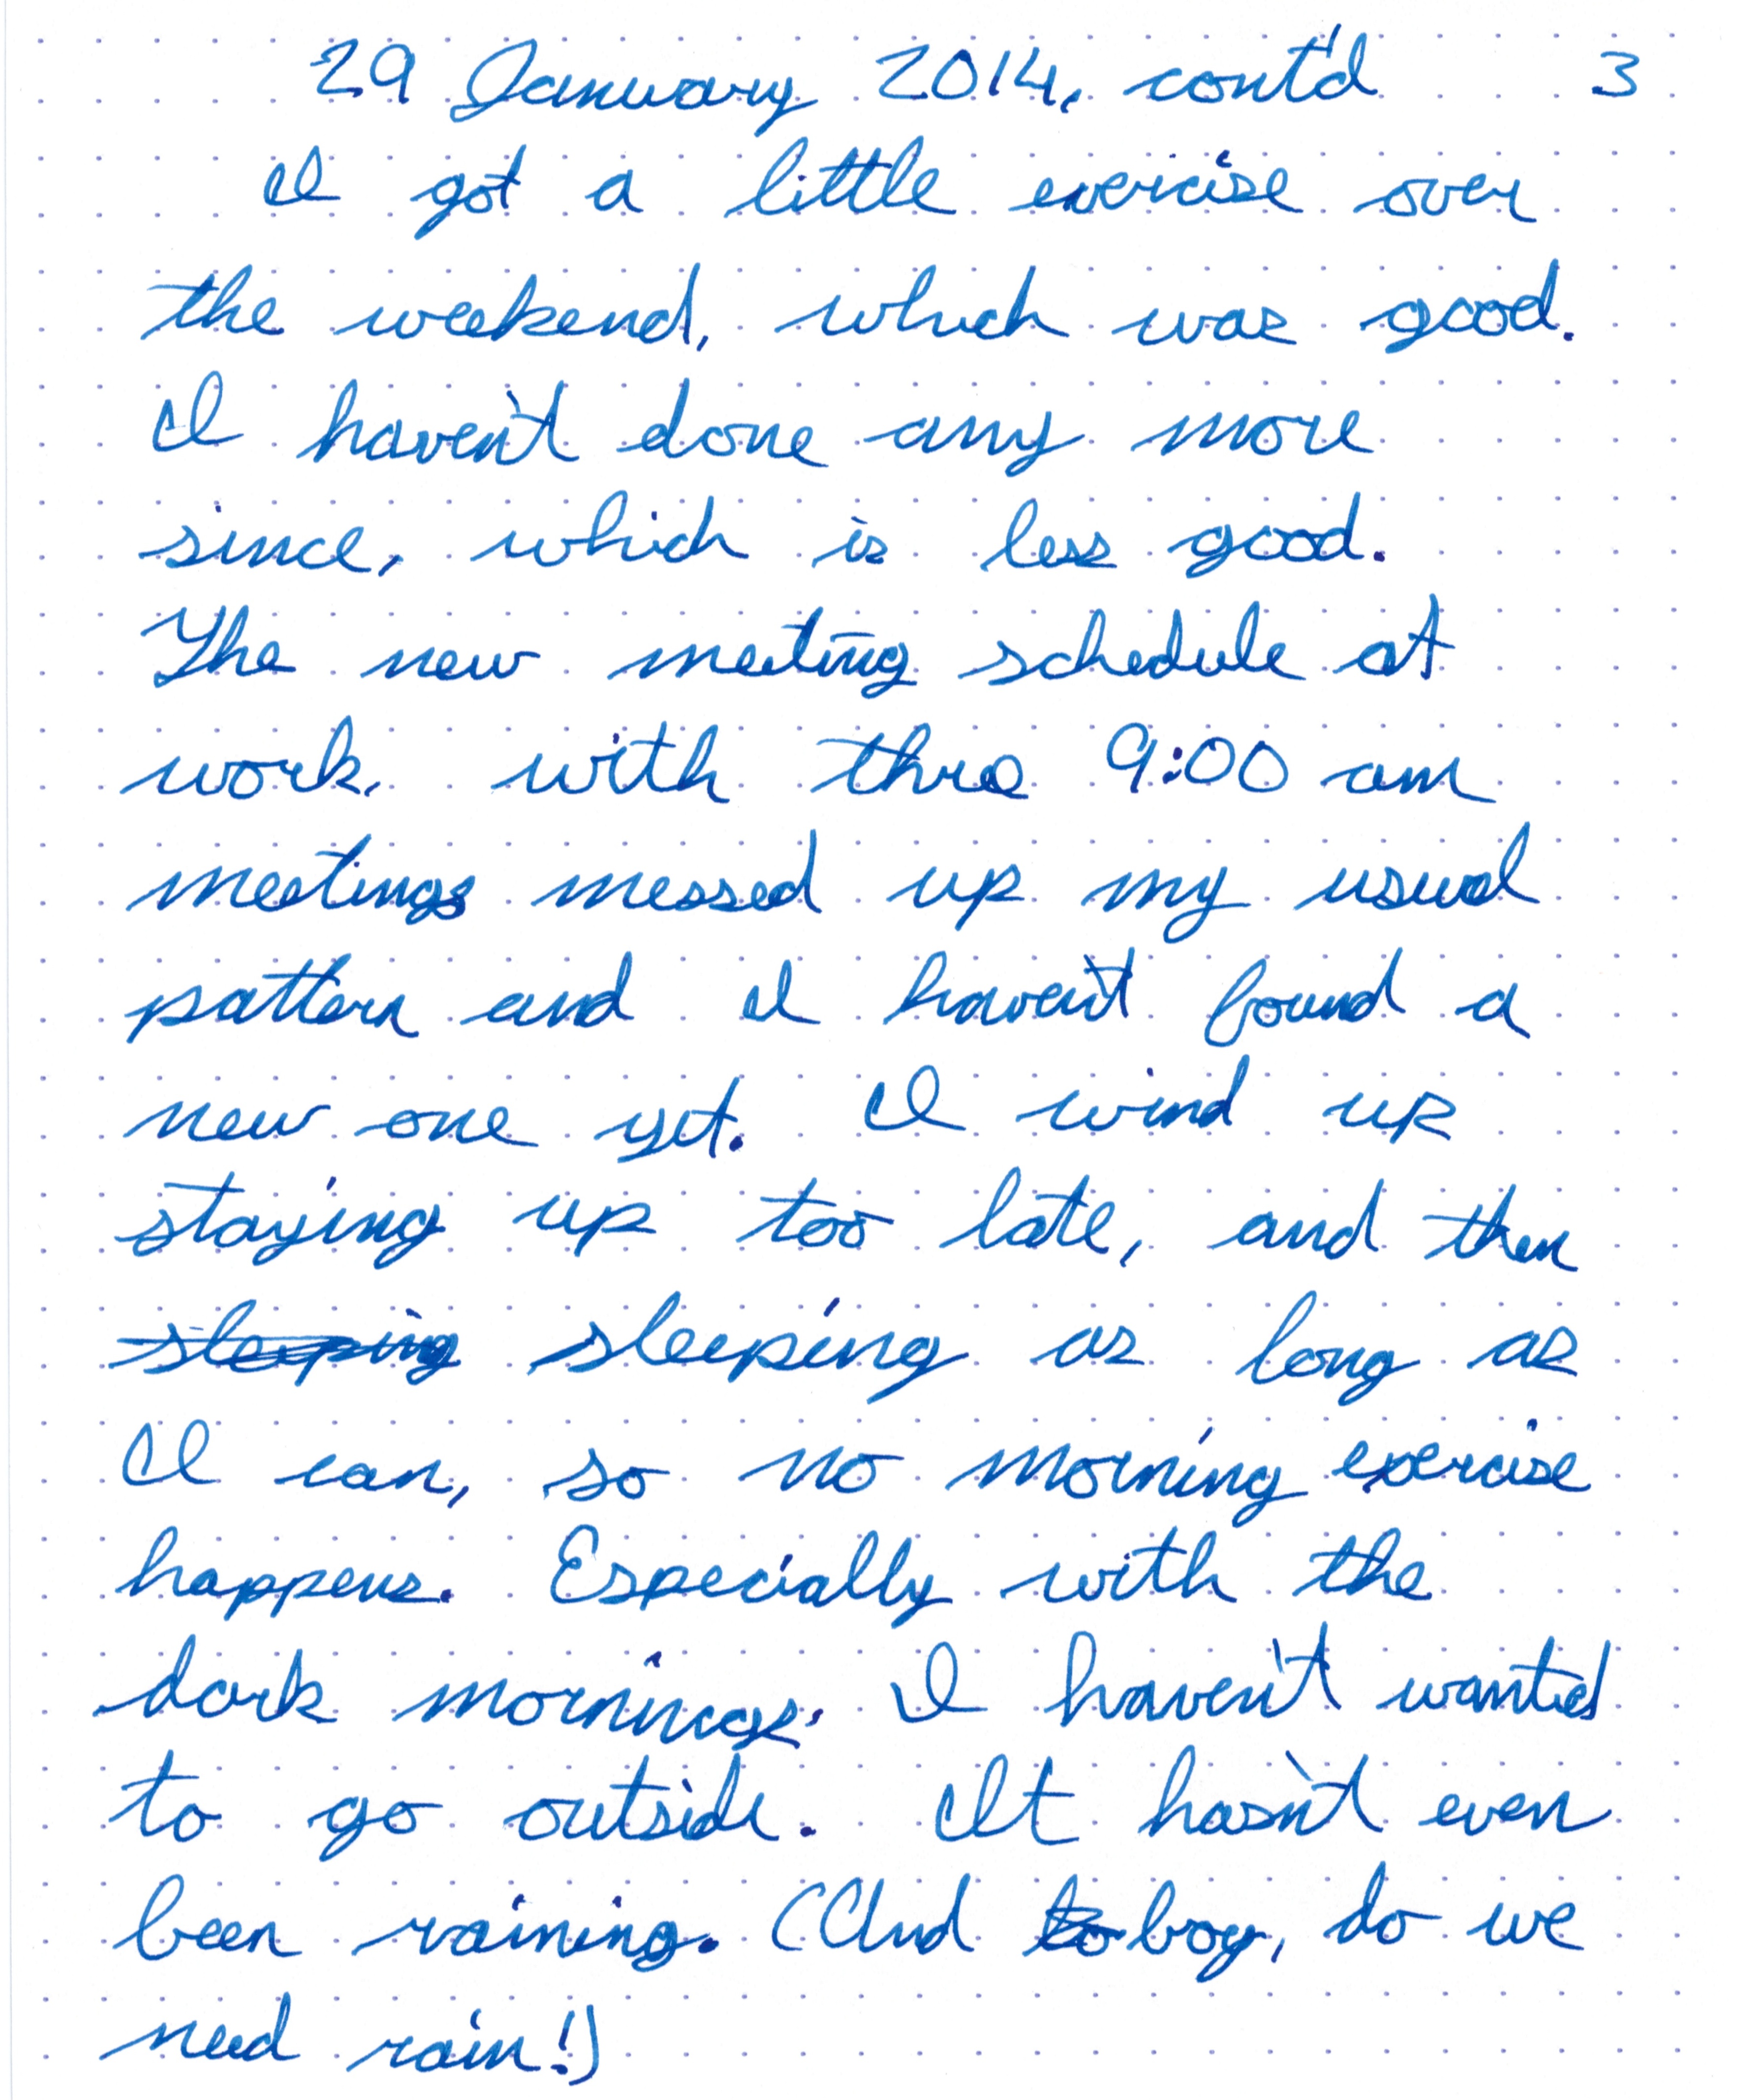 29 January 2014, cont'd 3
I got a little exercise over
the weekend, which was good.
I haven't done any more
since, which is less good.
The new meeting schedule at
work, with three 9:00 am
meetings messed up my usual
pattern and I haven't found a
new one yet. I wind up
staying up too late, and then
sleeping sleeping as long as
I can, so no morning exercise
happens. Especially with the
dark mornings, I haven't wanted
to go outside. It hasn't even
been raining. (And bo boy, do we
need rain!)